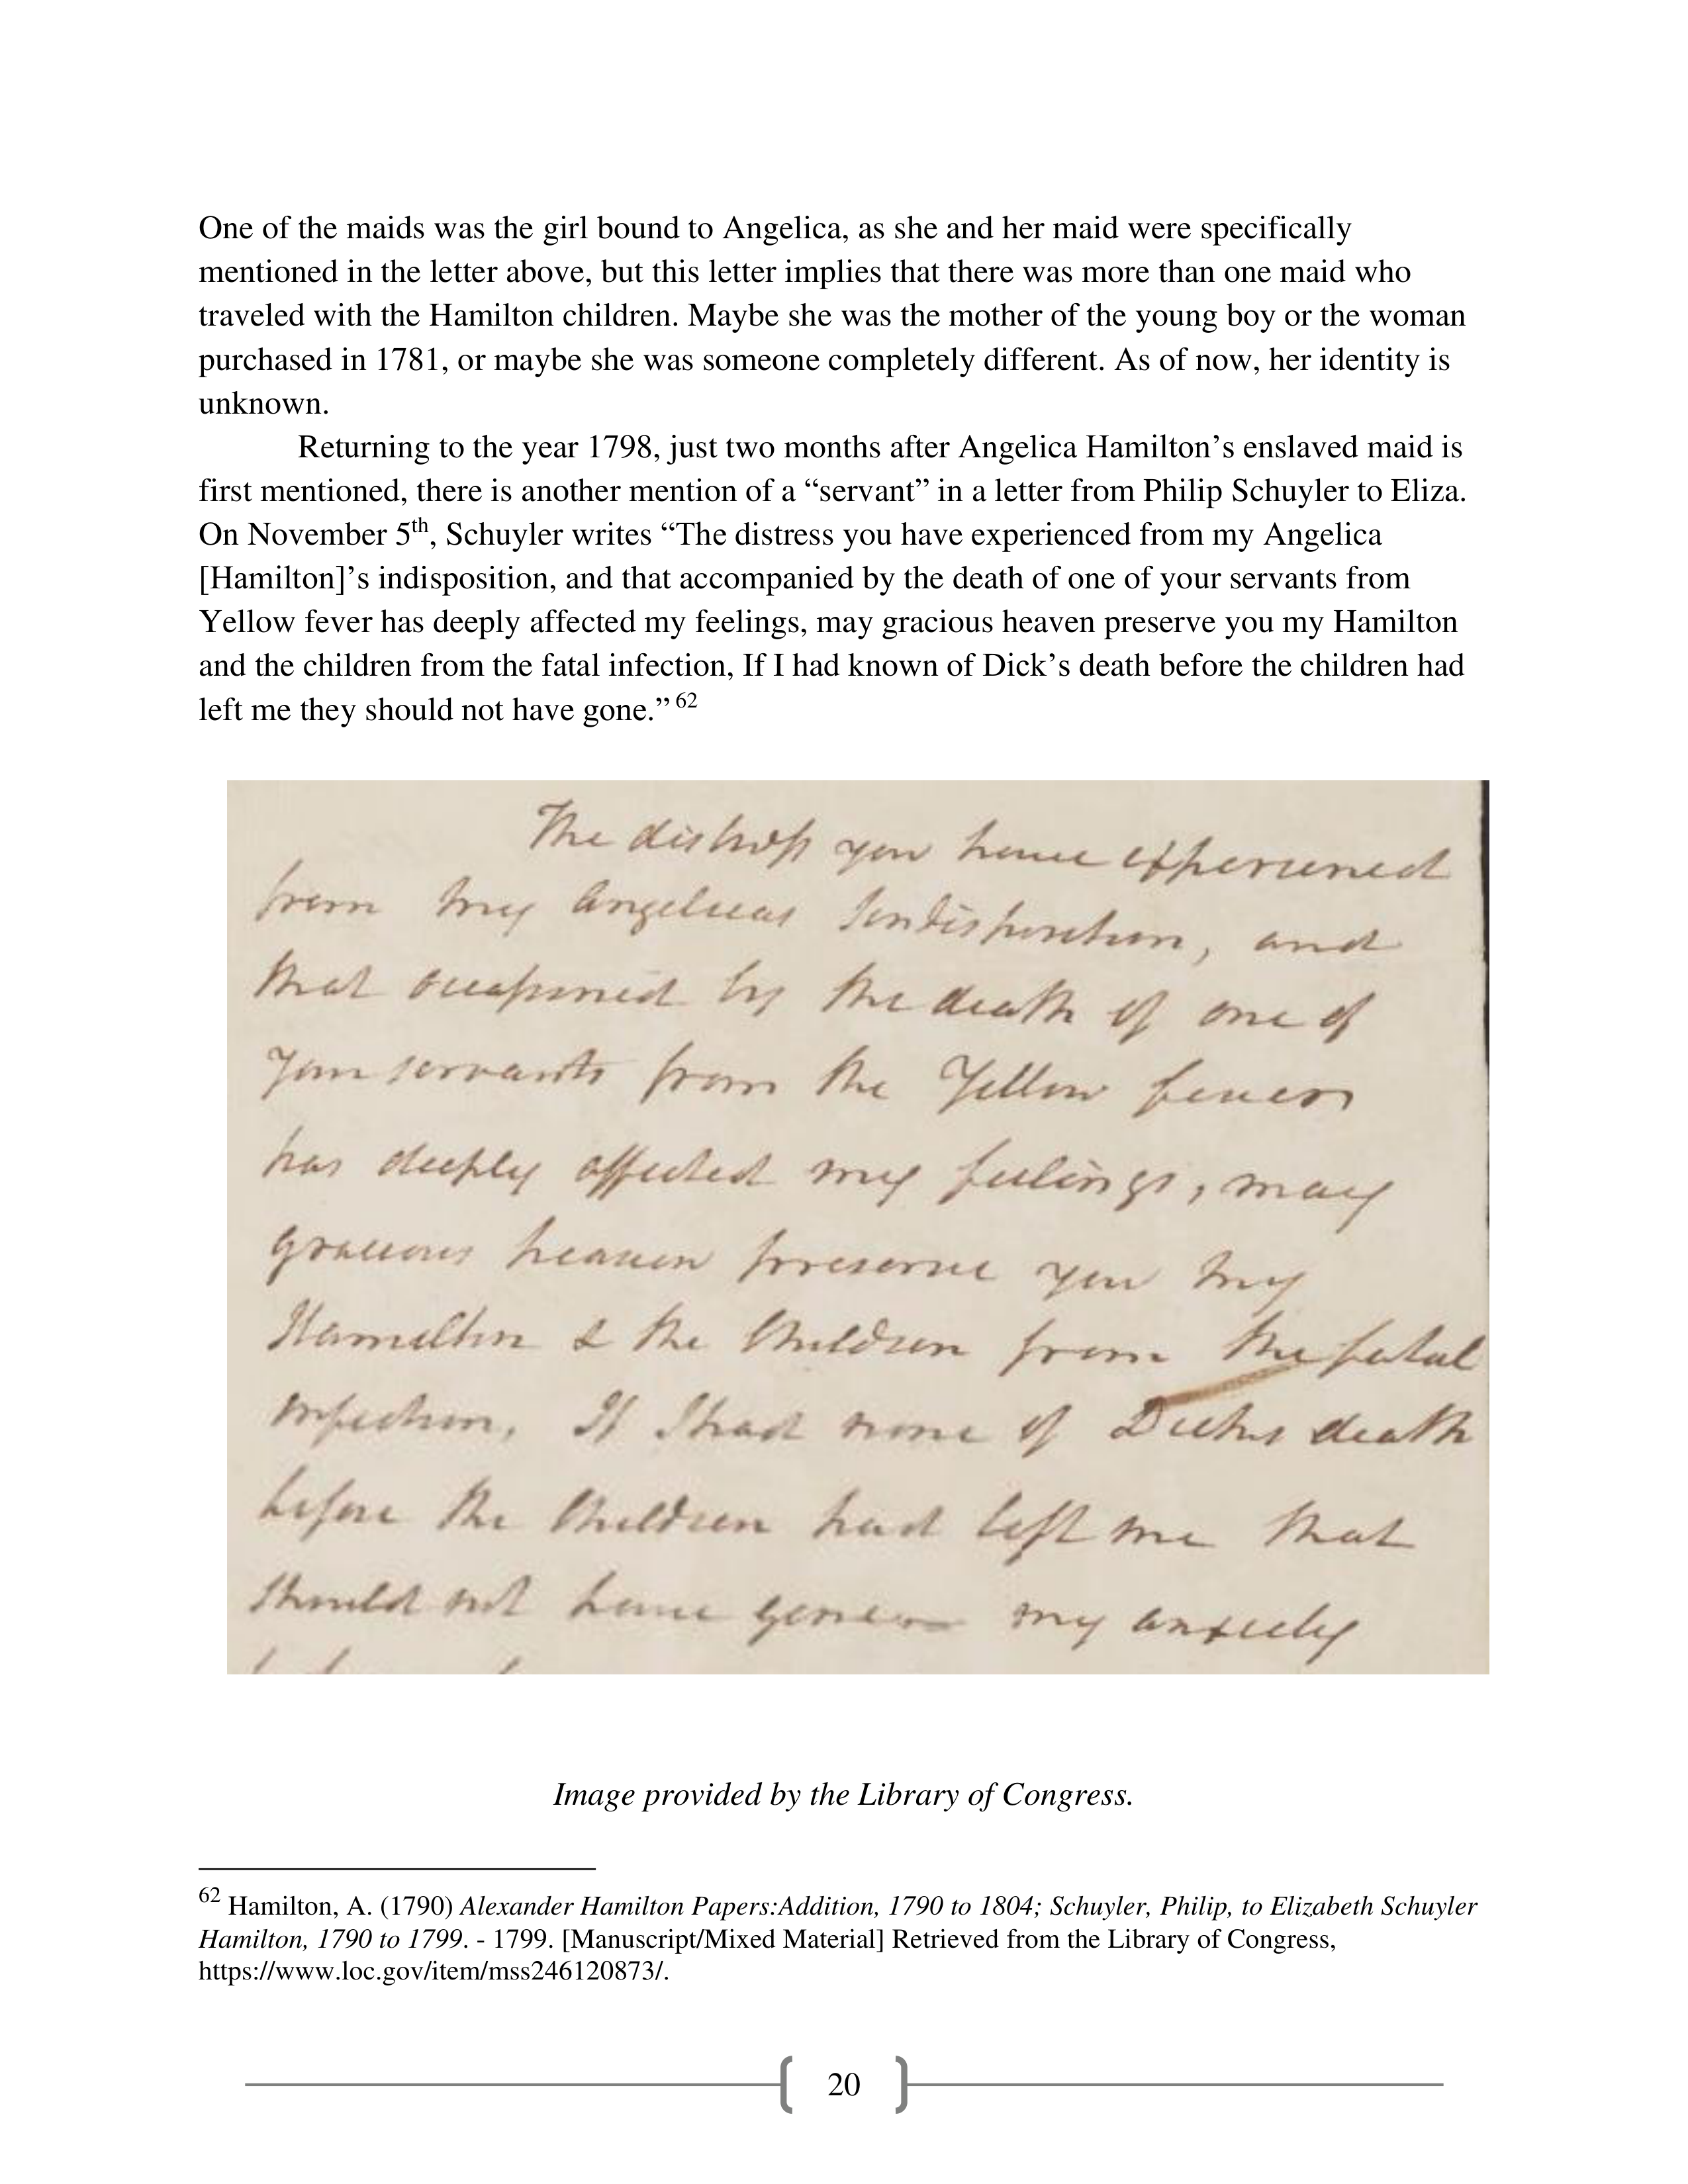 One of the maids was the girl bound to Angelica, as she and her maid were specifically
mentioned in the letter above, but this letter implies that there was more than one maid who
traveled with the Hamilton children. Maybe she was the mother of the young boy or the woman
purchased in 1781, or maybe she was someone completely different. As of now, her identity is
unknown.
Returning to the year 1798, just two months after Angelica Hamilton’s enslaved maid is
first mentioned, there is another mention of a “servant” in a letter from Philip Schuyler to Eliza.
On November 5th, Schuyler writes “The distress you have experienced from my Angelica
[Hamilton]’s indisposition, and that accompanied by the death of one of your servants from
Yellow fever has deeply affected my feelings, may gracious heaven preserve you my Hamilton
and the children from the fatal infection, If I had known of Dick’s death before the children had
left me they should not have gone.” 62
The distress you have experienced
from my Angelicas Indisposition, and
that occasioned by the death of one of
your servants from the Yellow fever
has deeply affected my feelings, may
gracious heaven preserve you my
Hamilton & the Children from the fatal
infection, If I had none of death
before the Children had left me that
should not have gone my anxiety
Image provided by the Library of Congress.
62 Hamilton, A. (1790) Alexander Hamilton Papers:Addition, 1790 to 1804; Schuyler, Philip, to Elizabeth Schuyler
Hamilton, 1790 to 1799. - 1799. [Manuscript/Mixed Material] Retrieved from the Library of Congress,
https://www.loc.gov/item/mss246120873/.
20